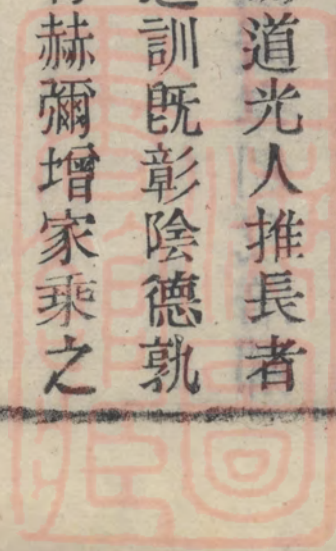 道光人推長者
訓既彰陰德孰
赫彌增家乘之